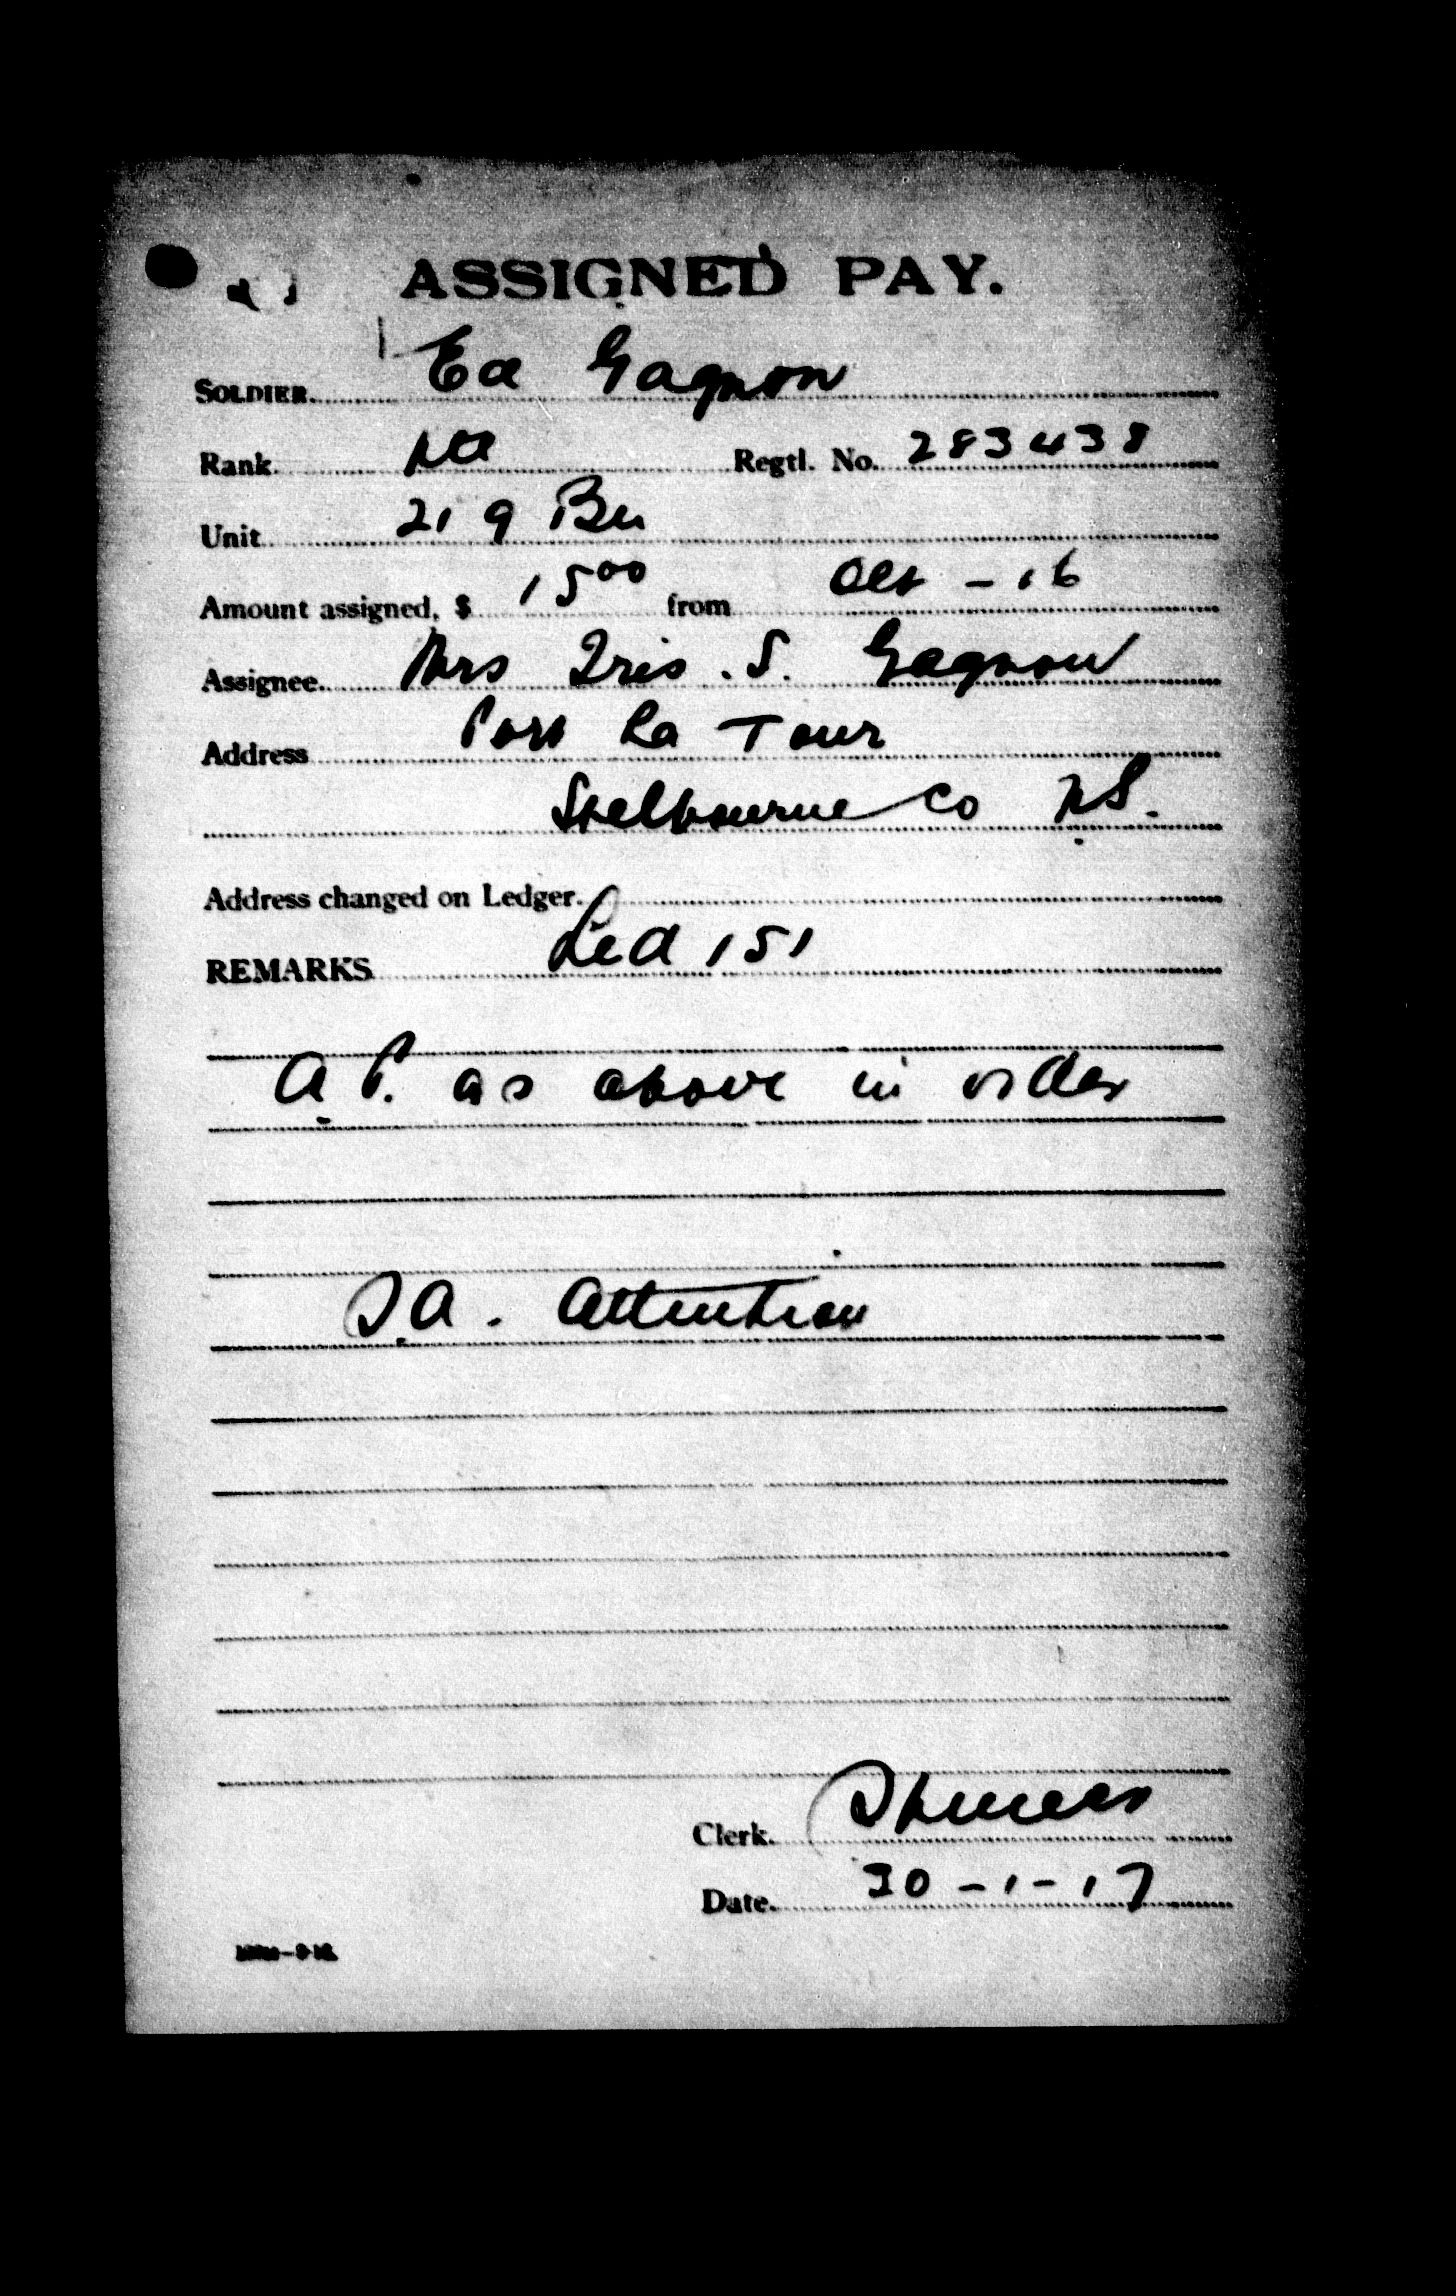 ASSIGNED PAY.
SOLDIER. Ed Gagnon
Rank Pte Regtl. No. 283438
Unit 219 Bn
Amount assigned, $ 15 00 from Oct - 16
Assignee. Mrs Iris . S. Gagnon
Address Port La Tour
Shelbourne Co N.S.
Address changed on Ledger.
REMARKS Led 151
A.P. as above in order
S.A. Attention
Clerk. Spencer
Date. 30-1-17